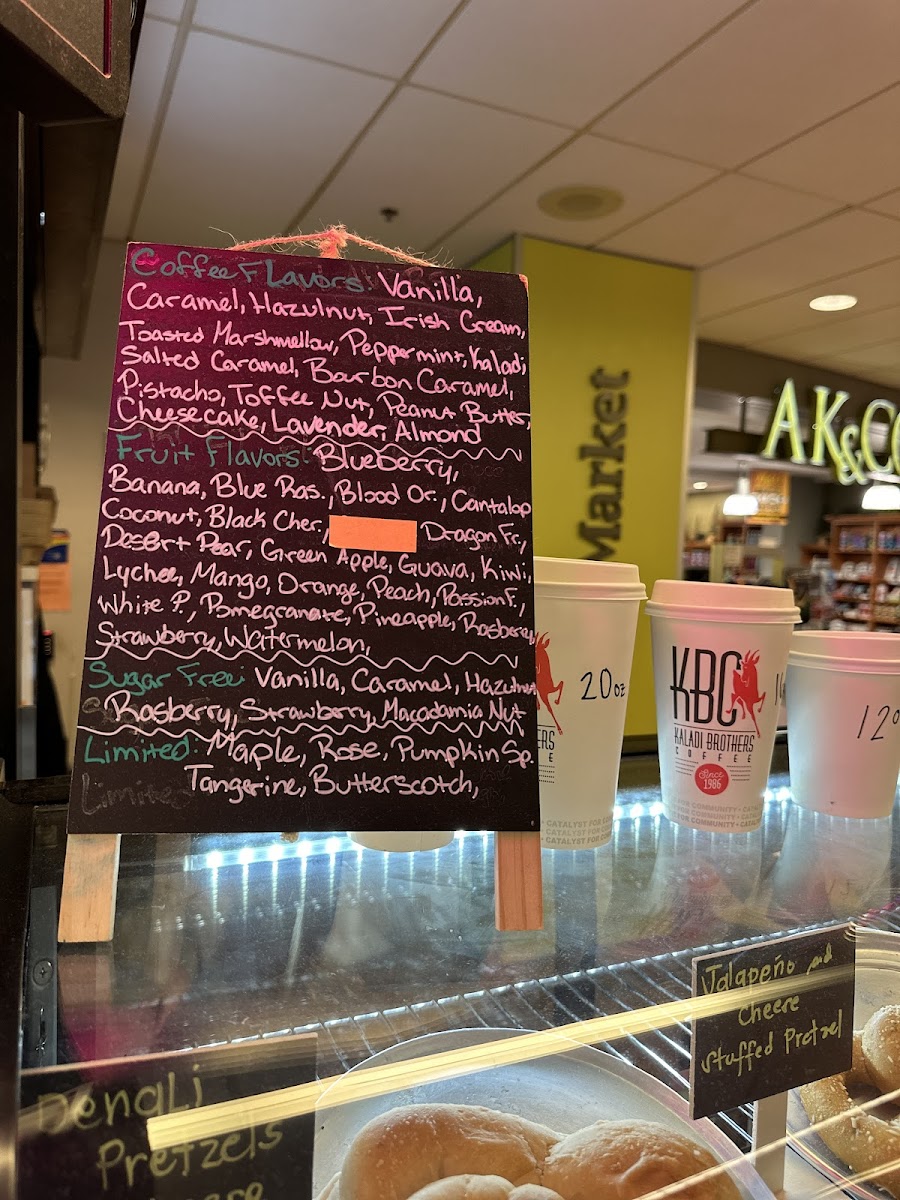 Coffee Flavors: Vanilla,
Caramel, Hazulnut, Irish Cream,
Toasted Marshmellow, Peppermint, Kaladi,
Salted Caramel, Bourbon Caramel,
Pistacho, Toffee Nut, Peanut Butter,
Cheesecake, Lavender, Almond
Fruit Flavors: Blueberry,
Banana, Blue Ras., Blood Or., Cantalop
Coconut, Black Cher., Dragon Fr,
Desert Pear, Green Apple, Guava, Kiwi,
Lychee, Mango, Orange, Peach, Passion F.,
White P., Pomegranate, Pineapple, Rasberry,
Strawberry, Watermelon,
Sugar Free: Vanilla, Caramel, Hazulnut
Rasberry, Strawberry, Macadamia Nut
Limited: Maple, Rose, Pumpkin Sp.
Tangerine, Butterscotch,
Limited
Market
AK&CO
20oz
ERS
E
KBC
KALADI BROTHERS
COFFEE
Since
1986
FOR COMMUNITY • CATA
CATALYST FOR COMM
12o
Jalapeño and
Cheere
stuffed Pretzel
Dengli
Pretzels